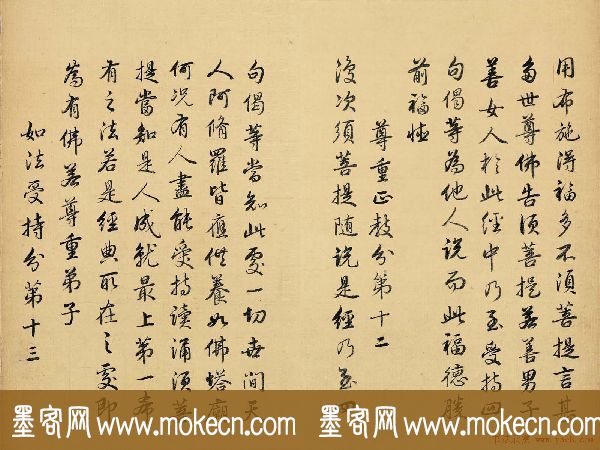 用布施得福多不須菩提言甚
多世尊佛告須菩提若善男子
善女人於此經中乃至受持四
句偈等為他人說而此福德勝
前福德
尊重正教分第十二
復次須菩提随說是經乃至四
句偈等當知此處一切世間天
人阿脩羅皆應供養如佛塔廟
何況有人盡能受持讀誦須菩
提當知是人成就最上第一希
有之法若是經典所在之處即
為有佛若尊重弟子
如法受持分第十三
墨客网 www.mokecn.com
墨客网 www.mokecn.com